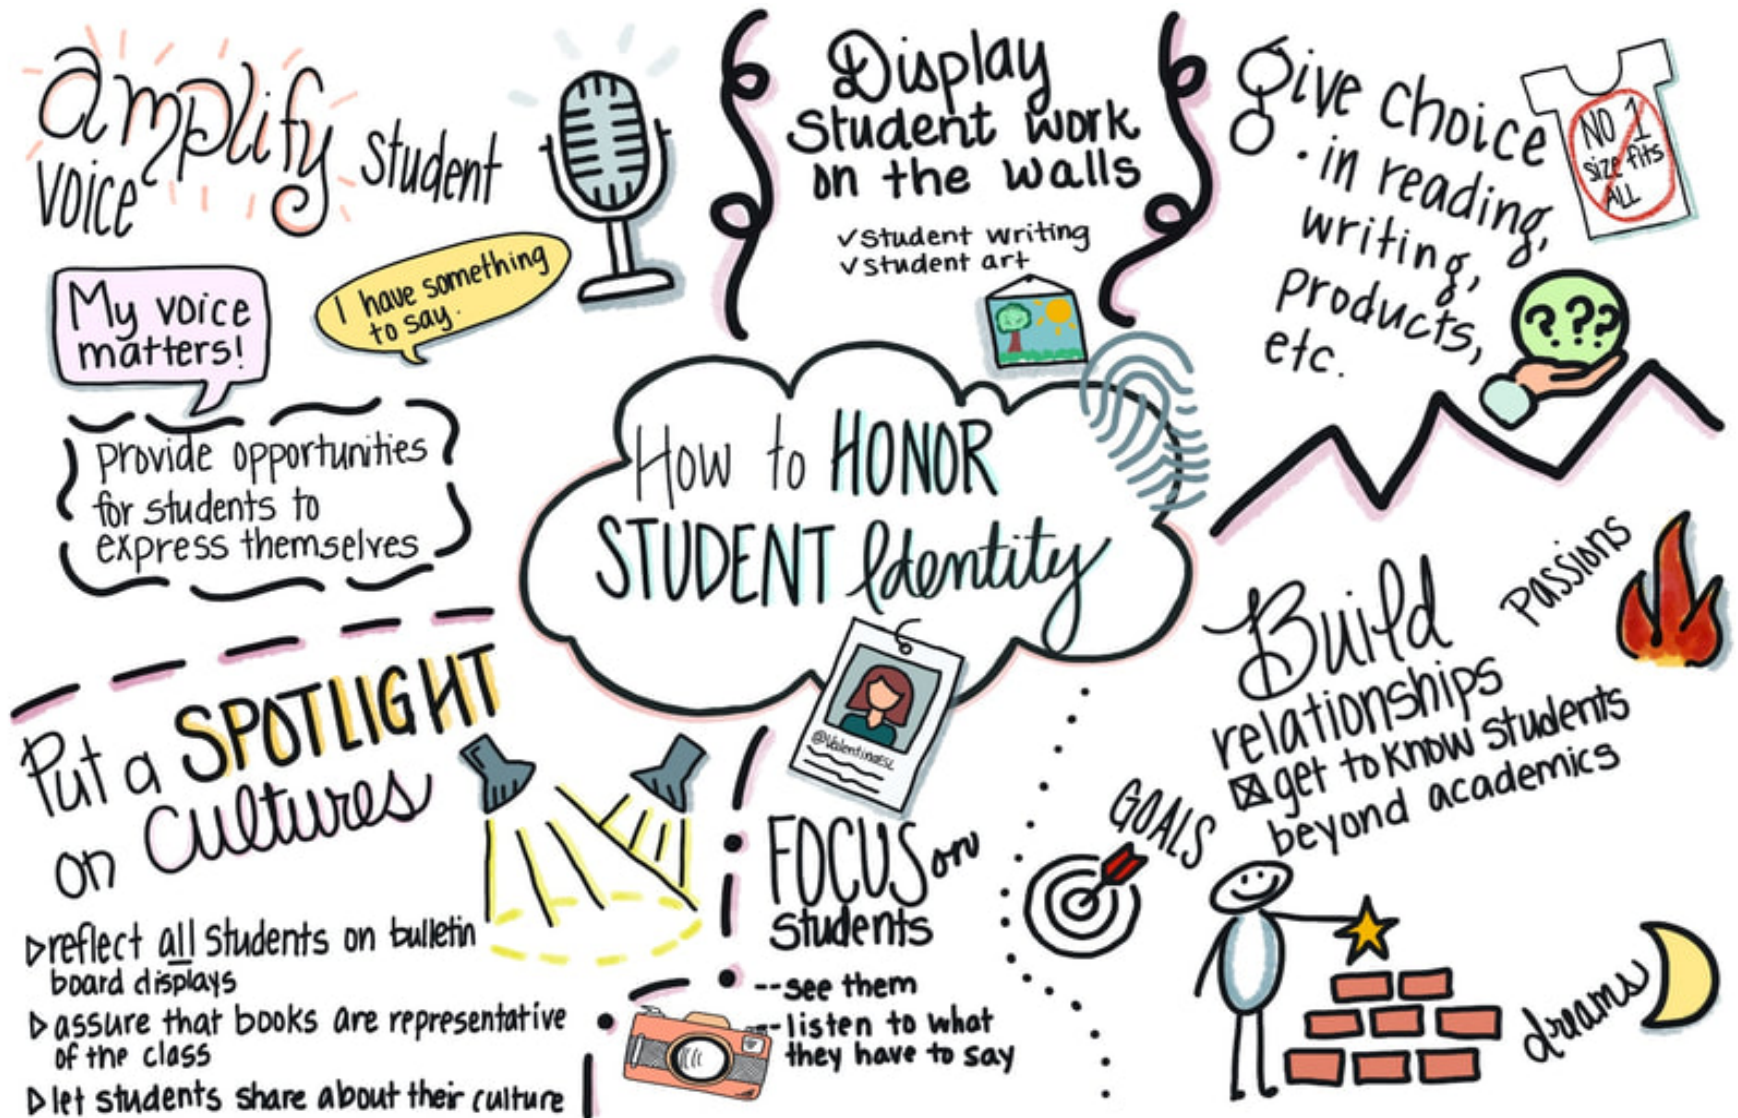 amplify student
voice
My voice
matters!
I have something
to say.
provide opportunities
for students to
express themselves
Display
student work
on the walls
✓student writing
✓student art
give choice
• in reading,
writing,
products,
etc.
NO 1
size fits
ALL
? ??
How to HONOR
STUDENT Identity
@ValentinaESL
Put a SPOTLIGHT
on Cultures
▷reflect all students on bulletin
board displays
▷assure that books are representative
of the class
▷let students share about their culture
FOCUS on
students
--see them
--listen to what
they have to say
Build
relationships
☒get to know students
beyond academics
Passions
GOALS
dreams